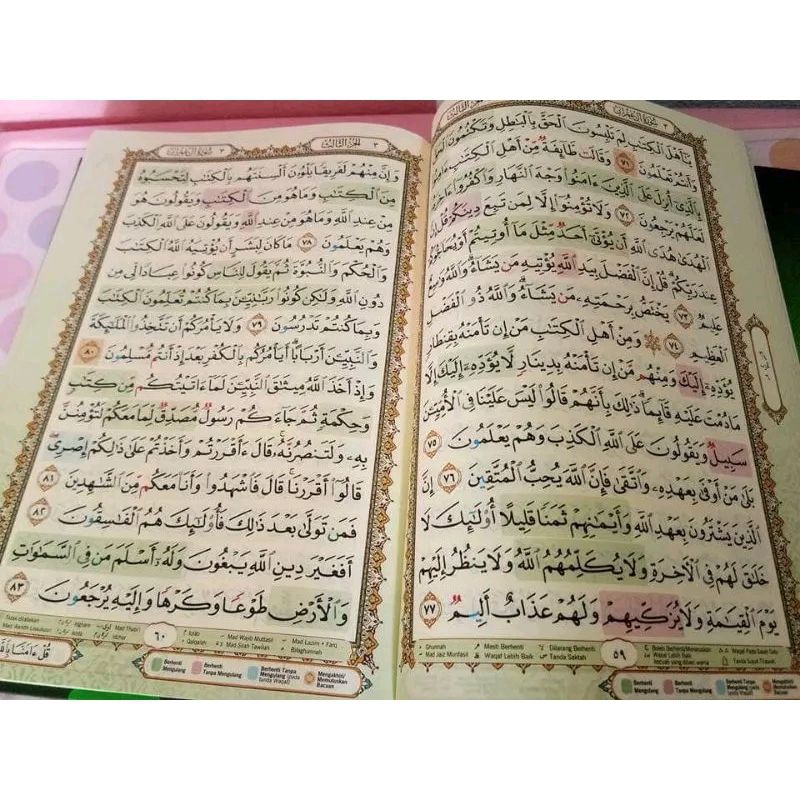 ٣ سُورَةُ آلِ عِمْرَانَ
الْجُزْءُ الثَّالِثُ
يَٰٓأَهْلَ ٱلْكِتَٰبِ لِمَ تَلْبِسُونَ ٱلْحَقَّ بِٱلْبَٰطِلِ وَتَكْتُمُونَ
وَأَنتُمْ تَعْلَمُونَ ٧١ وَقَالَت طَّآئِفَةٌ مِّنْ أَهْلِ ٱلْكِتَٰبِ
بِٱلَّذِىٓ أُنزِلَ عَلَى ٱلَّذِينَ ءَامَنُوا۟ وَجْهَ ٱلنَّهَارِ وَٱكْفُرُوٓا۟ ءَاخِرَهُۥ
لَعَلَّهُمْ يَرْجِعُونَ ٧٢ وَلَا تُؤْمِنُوٓا۟ إِلَّا لِمَن تَبِعَ دِينَكُمْ قُلْ إِنَّ
ٱلْهُدَىٰ هُدَى ٱللَّهِ أَن يُؤْتَىٰٓ أَحَدٌ مِّثْلَ مَآ أُوتِيتُمْ أَوْ يُحَآجُّوكُمْ
عِندَ رَبِّكُمْ قُلْ إِنَّ ٱلْفَضْلَ بِيَدِ ٱللَّهِ يُؤْتِيهِ مَن يَشَآءُ وَٱللَّهُ وَٰسِعٌ
عَلِيمٌ ٧٣ يَخْتَصُّ بِرَحْمَتِهِۦ مَن يَشَآءُ وَٱللَّهُ ذُو ٱلْفَضْلِ
ٱلْعَظِيمِ ٧٤ وَمِنْ أَهْلِ ٱلْكِتَٰبِ مَنْ إِن تَأْمَنْهُ بِقِنطَارٍ
يُؤَدِّهِۦٓ إِلَيْكَ وَمِنْهُم مَّنْ إِن تَأْمَنْهُ بِدِينَارٍ لَّا يُؤَدِّهِۦٓ إِلَيْكَ إِلَّا
مَا دُمْتَ عَلَيْهِ قَآئِمًا ذَٰلِكَ بِأَنَّهُمْ قَالُوا۟ لَيْسَ عَلَيْنَا فِى ٱلْأُمِّيِّۦنَ
سَبِيلٌ وَيَقُولُونَ عَلَى ٱللَّهِ ٱلْكَذِبَ وَهُمْ يَعْلَمُونَ ٧٥
بَلَىٰ مَنْ أَوْفَىٰ بِعَهْدِهِۦ وَٱتَّقَىٰ فَإِنَّ ٱللَّهَ يُحِبُّ ٱلْمُتَّقِينَ ٧٦ إِنَّ
ٱلَّذِينَ يَشْتَرُونَ بِعَهْدِ ٱللَّهِ وَأَيْمَٰنِهِمْ ثَمَنًا قَلِيلًا أُو۟لَٰٓئِكَ لَا
خَلَٰقَ لَهُمْ فِى ٱلْءَاخِرَةِ وَلَا يُكَلِّمُهُمُ ٱللَّهُ وَلَا يَنظُرُ إِلَيْهِمْ
يَوْمَ ٱلْقِيَٰمَةِ وَلَا يُزَكِّيهِمْ وَلَهُمْ عَذَابٌ أَلِيمٌ ٧٧
٥٩
Ghunnah
Mad Jaiz Munfasil
Mesti Berhenti
Waqaf Lebih Baik
Dilarang Berhenti
Tanda Saktah
Boleh Berhenti/Meneruskan
Waqaf Lebih Baik
Waqaf Pada Salah Satu
Tanda Sujud Tilawah
Berhenti Mengulang
Berhenti Tanpa Mengulang
Berhenti Tanpa Mengulang (pada tanda Waqaf)
Mengakhiri/ Memulakan Bacaan
٣ الْجُزْءُ الثَّالِثُ
٣ سُورَةُ آلِ عِمْرَانَ
وَإِنَّ مِنْهُمْ لَفَرِيقًا يَلْوُۥنَ أَلْسِنَتَهُم بِٱلْكِتَٰبِ لِتَحْسَبُوهُ
مِنَ ٱلْكِتَٰبِ وَمَا هُوَ مِنَ ٱلْكِتَٰبِ وَيَقُولُونَ هُوَ
مِنْ عِندِ ٱللَّهِ وَمَا هُوَ مِنْ عِندِ ٱللَّهِ وَيَقُولُونَ عَلَى ٱللَّهِ ٱلْكَذِبَ
وَهُمْ يَعْلَمُونَ ٧٨ مَا كَانَ لِبَشَرٍ أَن يُؤْتِيَهُ ٱللَّهُ ٱلْكِتَٰبَ
وَٱلْحُكْمَ وَٱلنُّبُوَّةَ ثُمَّ يَقُولَ لِلنَّاسِ كُونُوا۟ عِبَادًا لِّى مِن
دُونِ ٱللَّهِ وَلَٰكِن كُونُوا۟ رَبَّٰنِيِّۦنَ بِمَا كُنتُمْ تُعَلِّمُونَ ٱلْكِتَٰبَ
وَبِمَا كُنتُمْ تَدْرُسُونَ ٧٩ وَلَا يَأْمُرَكُمْ أَن تَتَّخِذُوا۟ ٱلْمَلَٰٓئِكَةَ
وَٱلنَّبِيِّۦنَ أَرْبَابًا أَيَأْمُرُكُم بِٱلْكُفْرِ بَعْدَ إِذْ أَنتُم مُّسْلِمُونَ ٨٠
وَإِذْ أَخَذَ ٱللَّهُ مِيثَٰقَ ٱلنَّبِيِّۦنَ لَمَآ ءَاتَيْتُكُم مِّن كِتَٰبٍ
وَحِكْمَةٍ ثُمَّ جَآءَكُمْ رَسُولٌ مُّصَدِّقٌ لِّمَا مَعَكُمْ لَتُؤْمِنُنَّ
بِهِۦ وَلَتَنصُرُنَّهُۥ قَالَ ءَأَقْرَرْتُمْ وَأَخَذْتُمْ عَلَىٰ ذَٰلِكُمْ إِصْرِى
قَالُوٓا۟ أَقْرَرْنَا قَالَ فَٱشْهَدُوا۟ وَأَنَا۠ مَعَكُم مِّنَ ٱلشَّٰهِدِينَ ٨١
فَمَن تَوَلَّىٰ بَعْدَ ذَٰلِكَ فَأُو۟لَٰٓئِكَ هُمُ ٱلْفَٰسِقُونَ ٨٢
أَفَغَيْرَ دِينِ ٱللَّهِ يَبْغُونَ وَلَهُۥٓ أَسْلَمَ مَن فِى ٱلسَّمَٰوَٰتِ
وَٱلْأَرْضِ طَوْعًا وَكَرْهًا وَإِلَيْهِ يُرْجَعُونَ ٨٣
٦٠
Mad Wajib Muttasil
Mad Silah Tawilah
Berhenti Mengulang
Berhenti Tanpa Mengulang
Berhenti Tanpa Mengulang (pada tanda Waqaf)
Mengakhiri/ Memulakan Bacaan